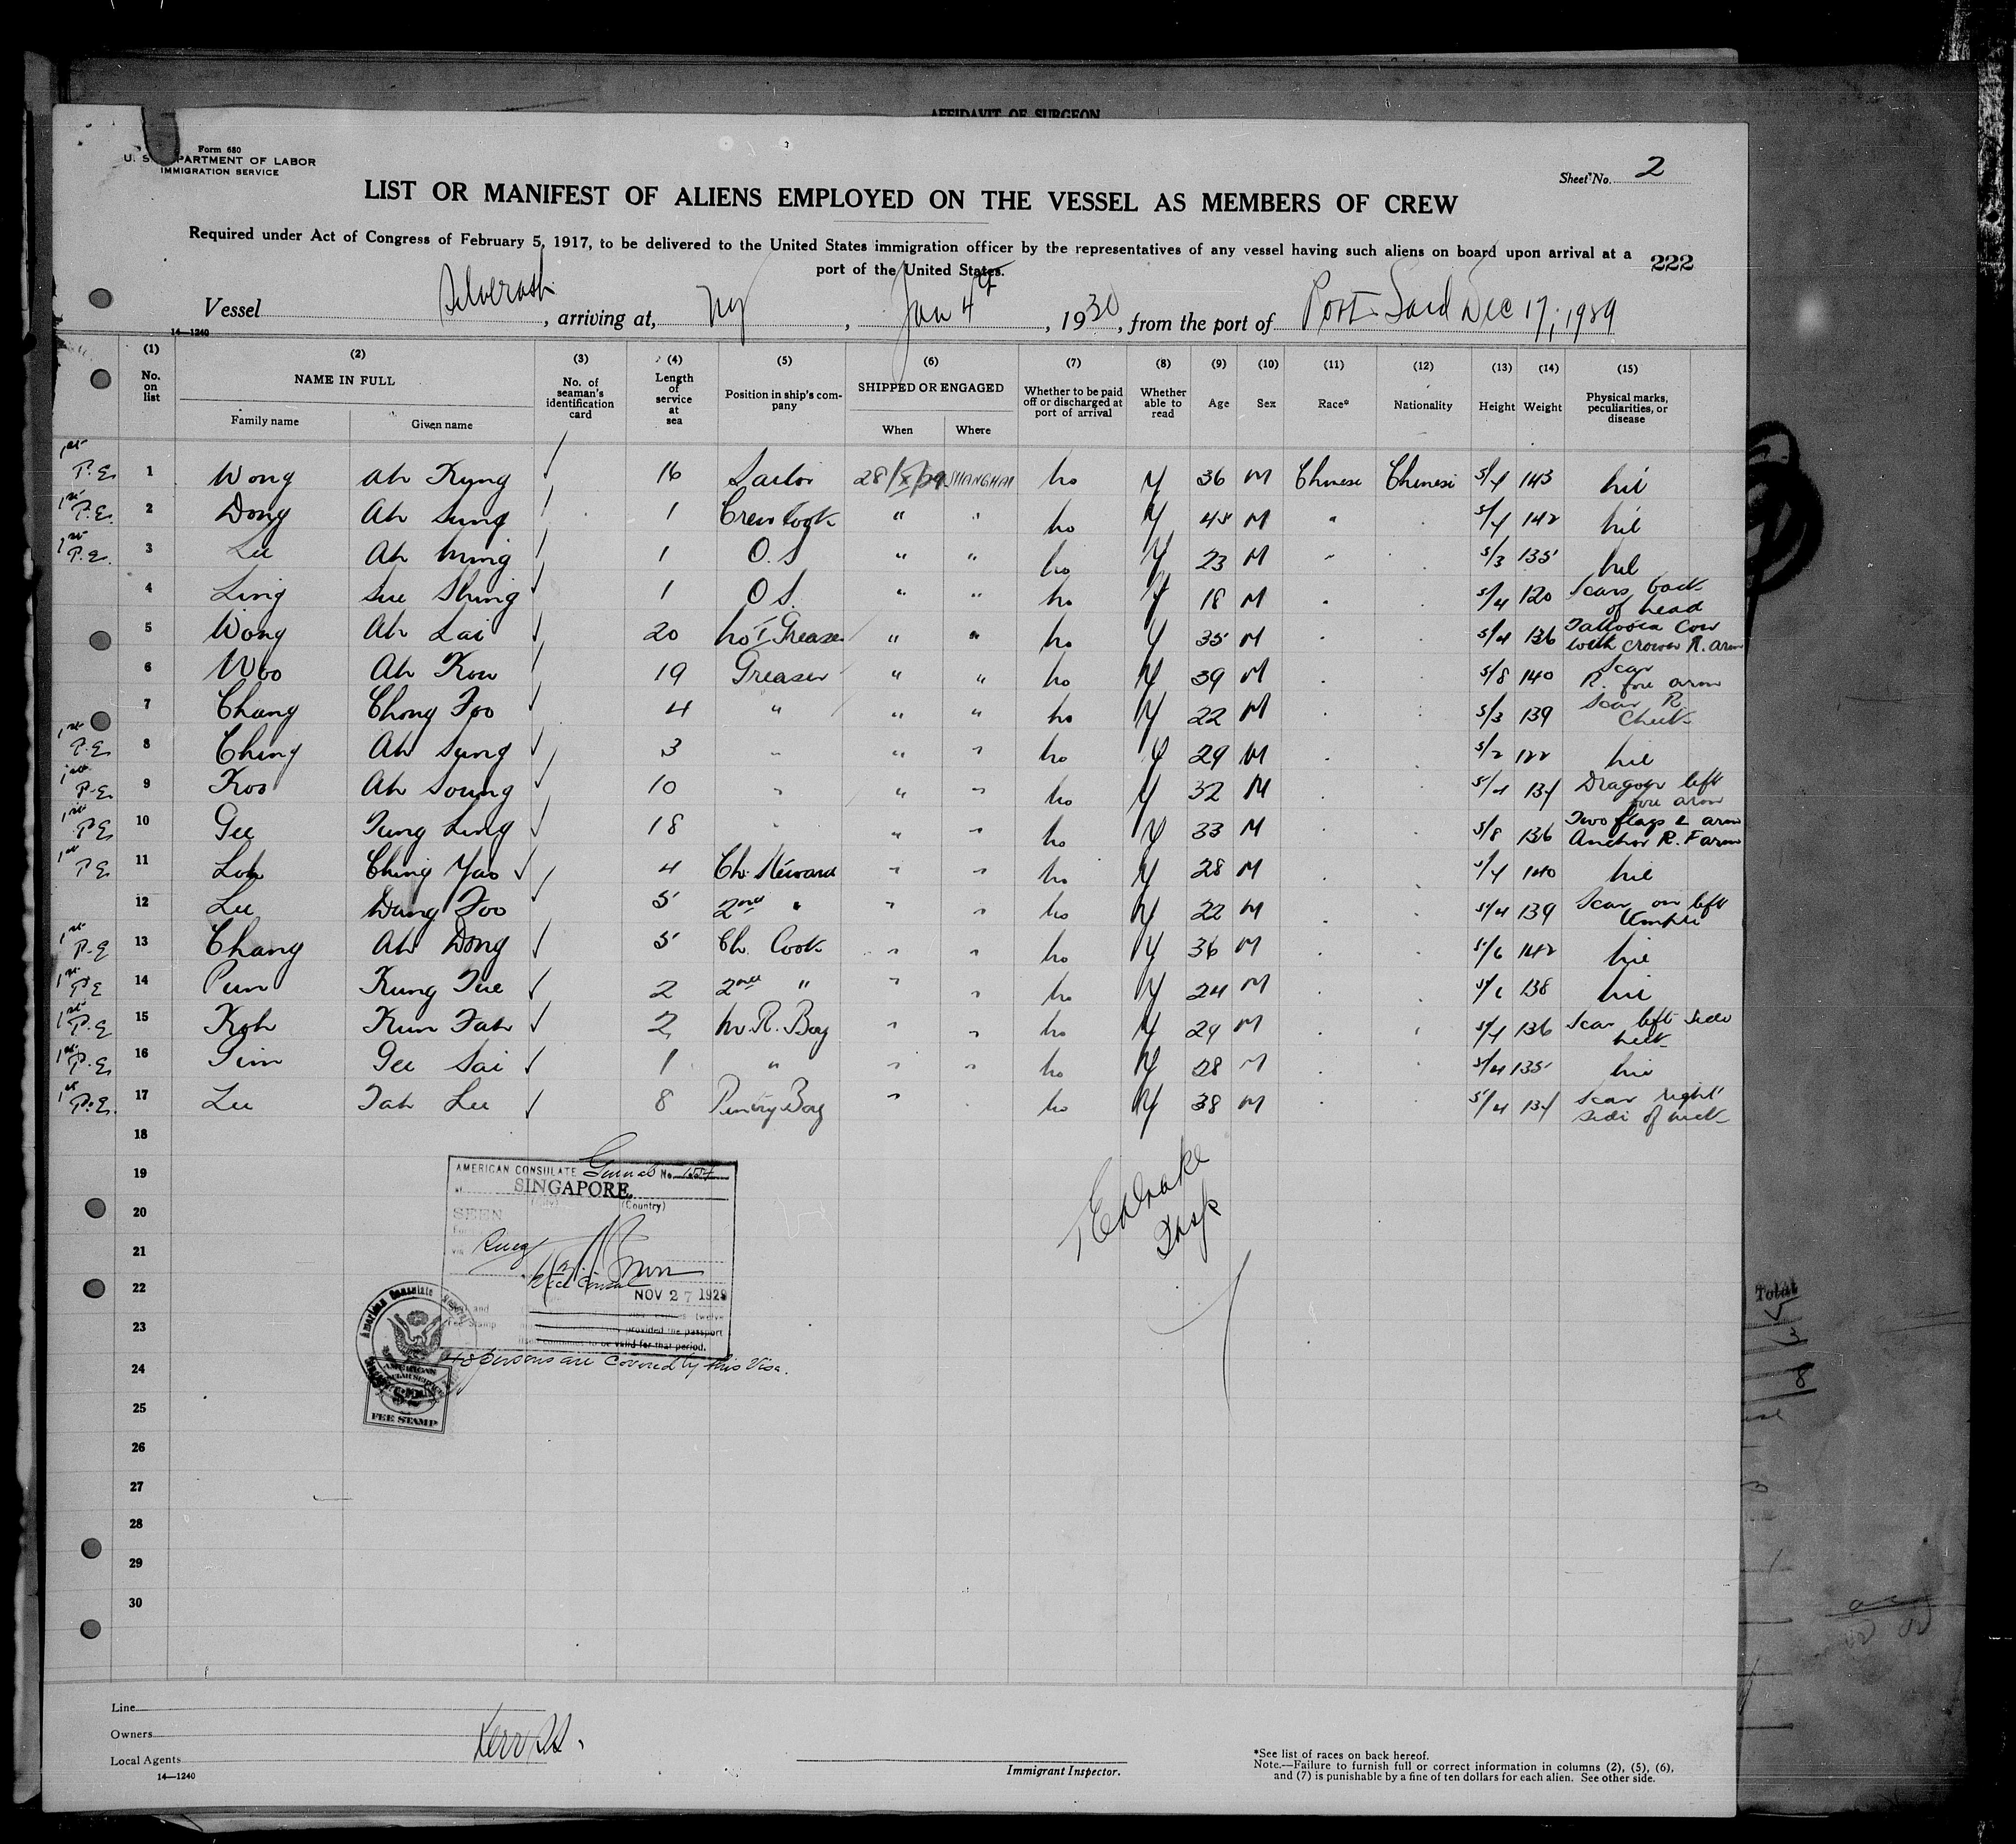 AFFIDAVIT OF SURGEON
Form 680
U. S. DEPARTMENT OF LABOR
IMMIGRATION SERVICE
Sheet No. 2
LIST OR MANIFEST OF ALIENS EMPLOYED ON THE VESSEL AS MEMBERS OF CREW
Required under Act of Congress of February 5, 1917, to be delivered to the United States immigration officer by the representatives of any vessel having such aliens on board upon arrival at a
port of the United States.
222
Vessel Silverash, arriving at, NY, Jan 4th, 1930, from the port of Port Said Dec 17, 1929
14—1240
(1) (2) (3) (4) (5) (6) (7) (8) (9) (10) (11) (12) (13) (14) (15)
No. on list NAME IN FULL Family name Given name No. of seaman's identification card Length of service at sea Position in ship's company SHIPPED OR ENGAGED When Where Whether to be paid off or discharged at port of arrival Whether able to read Age Sex Race* Nationality Height Weight Physical marks, peculiarities, or disease
1st P.E. 1 Wong Ah Kung 16 Sailor 28/X/29 SHANGHAI no Y 36 M Chinese Chinese 5/4 143 nil
1st P.E. 2 Dong Ah Sung 1 Crew Cook " " no Y 45 M " 5/4 142 nil
1st P.E. 3 Lee Ah Ming 1 O.S " " no Y 23 M " 5/3 135 nil
4 Ling Sue Shing 1 O S. " " no Y 18 M " 5/4 120 Scars back of head
5 Wong Ah Lai 20 No 1 Greaser " " no Y 35 M 5/4 136 Tattooed Cow with crown R. arm
6 Woo Ah Kow 19 Greaser " " no Y 39 M 5/8 140 Scar R. fore arm
7 Chang Chong Foo 4 " " " no Y 22 M 5/3 139 Scar R. Cheek
1st P.E. 8 Ching Ah Sung 3 " " " no Y 29 M 5/2 122 nil
1st P.E. 9 Koo Ah Soung 10 " " " no Y 32 M 5/4 134 Dragon left fore arm
1st P.E. 10 Gee Tung Ling 18 " " " no Y 33 M 5/8 136 Two flags L arm Anchor R. F arm
1st P.E. 11 Loh Ching Yao 4 Ch. Steward " " no Y 28 M 5/4 140 nil
12 Lee Dang Foo 5 2nd " " " no Y 22 M 5/4 139 Scar on left temple
1st P.E. 13 Chang Ah Dong 5 Ch. Cook " " no Y 36 M 5/6 142 nil
1st P.E. 14 Pun Kung Tue 2 2nd " " " no Y 24 M 138 nil
1st P.E. 15 Koh Kun Fah 2 M. R. Boy " " no Y 29 M 5/4 136 Scar left side neck
1st P.E. 16 Sim Gee Sai 1 " " " no Y 28 M 5/4 135 nil
1st P.E. 17 Lee Tah Lee 8 Pantry Boy " no Y 38 M 5/4 134 Scar right side of neck
18
19
20
21
22
23
24
25
26
27
28
29
30
AMERICAN CONSULATE General No.
at SINGAPORE.
(Country)
SEEN
Vice Consul
NOV 27 1929
provided the passport
to be valid for that period.
48 persons are covered by this Visa.
American Consulate General
AMERICAN CONSULAR SERVICE
FEE STAMP
Drake
Insp
Total
3
8
Line
Owners
Local Agents Kerr SS.
14—1240
Immigrant Inspector.
*See list of races on back hereof.
Note.—Failure to furnish full or correct information in columns (2), (5), (6),
and (7) is punishable by a fine of ten dollars for each alien. See other side.